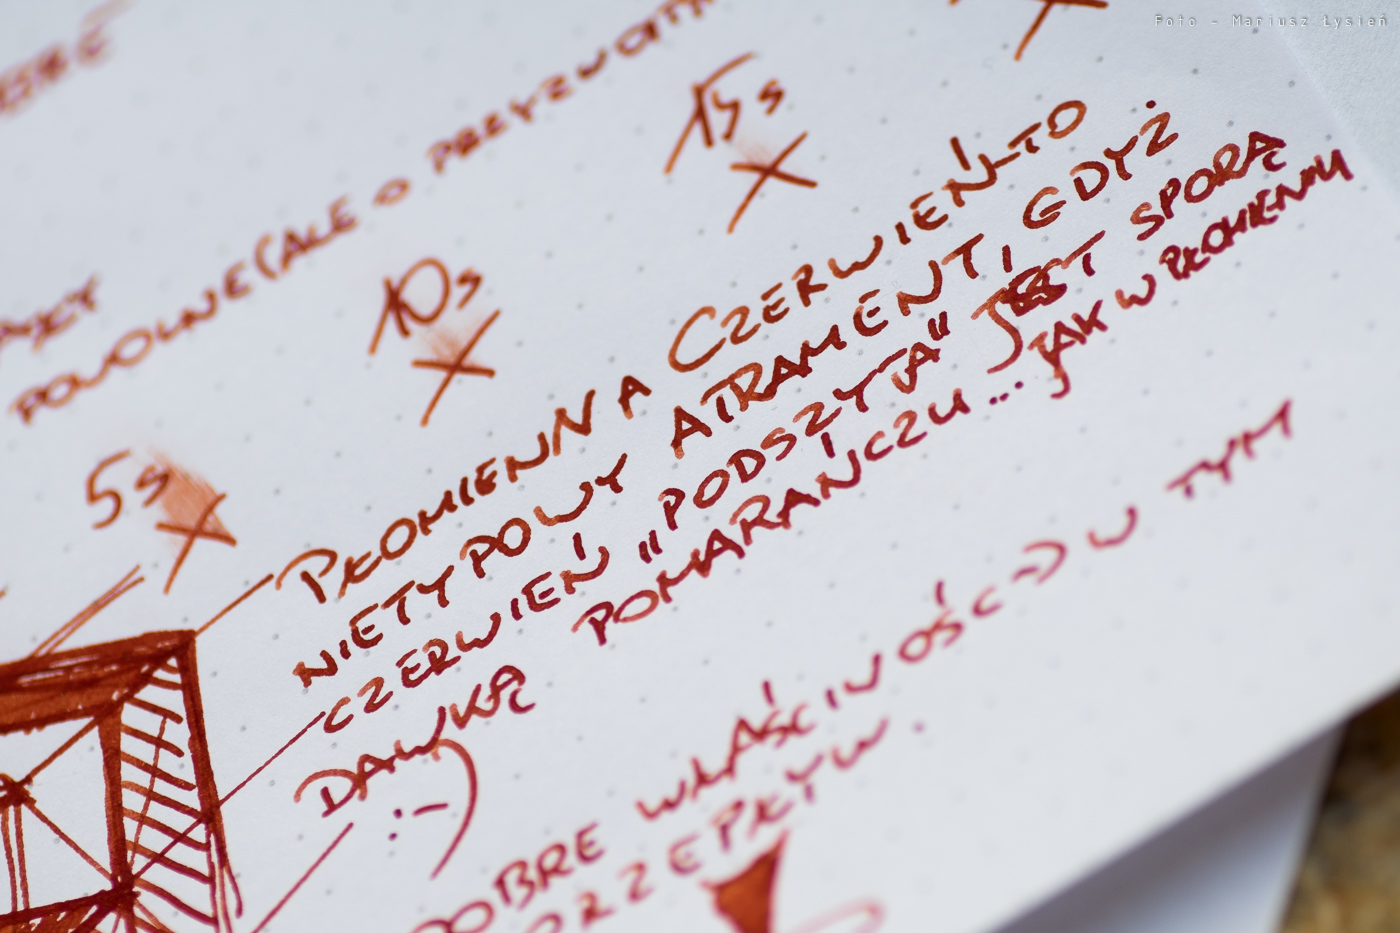 Foto - Mariusz Łysień
POWOLNE (ALE O
15s
10s
5s
PŁOMIENNA CZERWIEŃ-TO
NIETYPOWY ATRAMENT, GDYŻ
CZERWIEŃ „PODSZYTA" JEST SPORĄ
DAWKĄ POMARAŃCZU... JAK W PŁOMIENIU
:-)
DOBRE WŁAŚCIWOŚCI W TYM
PRZEPŁYW.